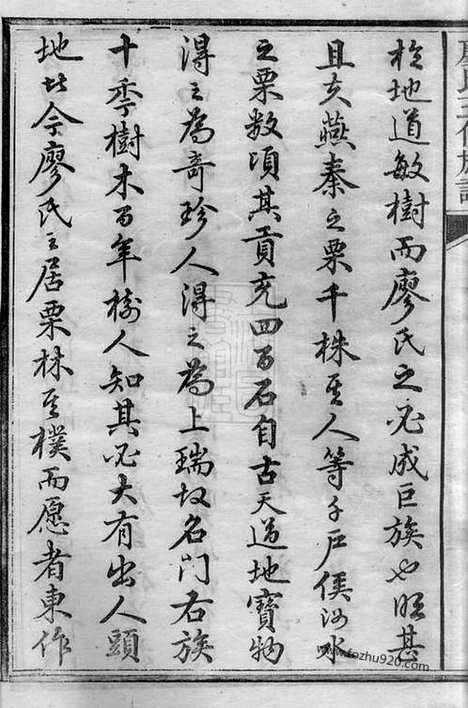 於地道敏樹而廖氏之必成巨族也明甚
且夫燕秦之栗千株其人等千戶侯汝水
之栗數頃其貢充四百石自古天造地寶物
得之為奇珍人得之為上瑞故名門右族
十季樹木百年樹人知其必大有出人頭
地者今廖氏之居栗林其樸而愿者東作
www.fozhu920.com